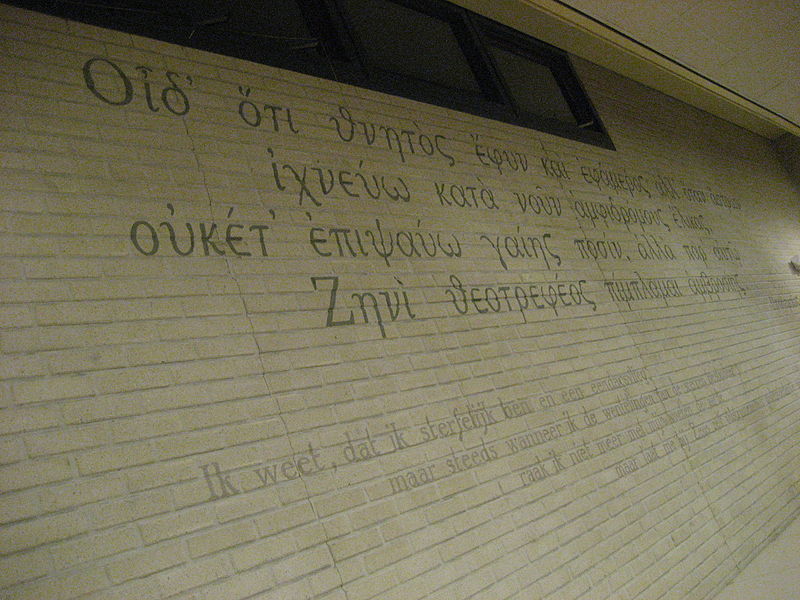 Οἶδ' ὅτι θνητὸς ἔφυν καὶ ἐφάμερος, ἀλλ' ὅταν ἄστρων
ἰχνεύω κατὰ νοῦν ἀμφιδρόμους ἕλικας,
οὐκέτ' ἐπιψαύω γαίης ποσιν, ἀλλὰ παρ' αὐτῷ
Ζηνὶ θεοτρεφέος πίμπλαμαι ἀμβροσίης
Ik weet, dat ik sterfelijk ben en een eendagsvlieg,
maar steeds wanneer ik de wentelingen van de sterren
raak ik niet meer met mijn voeten de aarde
maar laat me bij Zeus zelf